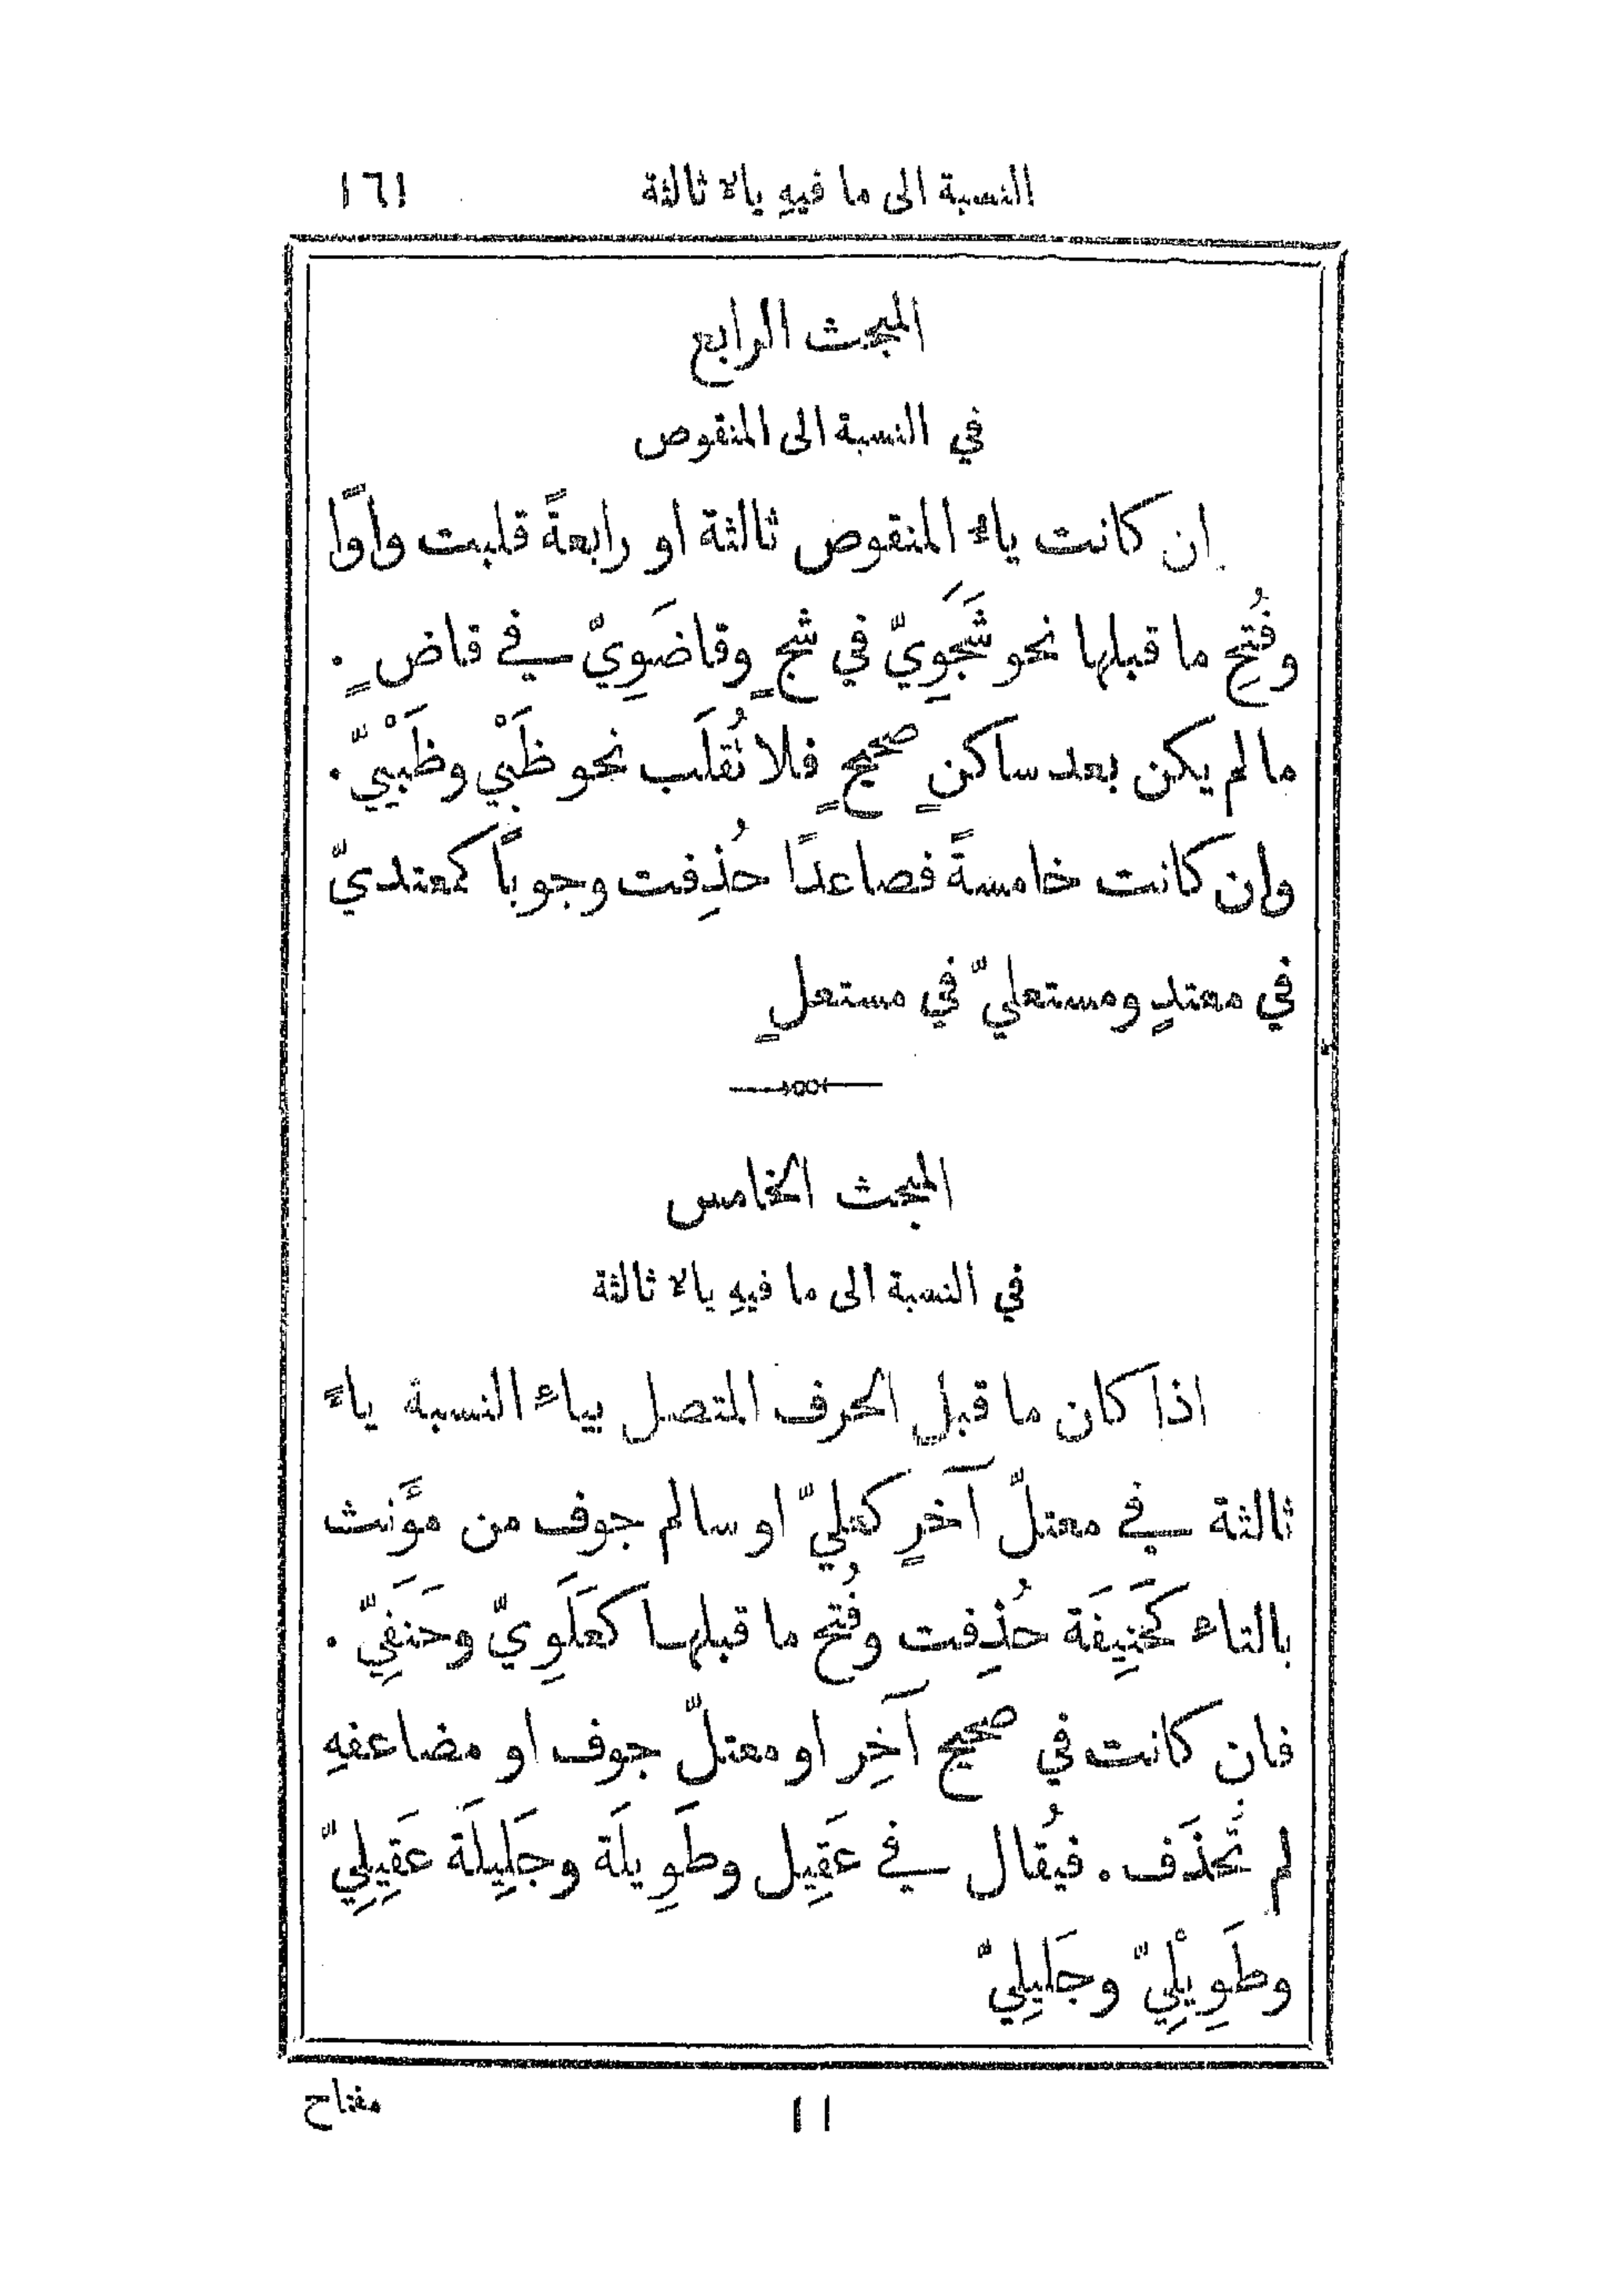 النسبة الى ما فيهِ يالا ثالثة ١٦١
المبحث الرابع
في النسبة الى المنقوص
ان كانت ياء المنقوص ثالثة او رابعةً قلبت واوًا
وفُتِح ما قبلها نحو شَجَوِيّ في شجٍ وقاضَوِيّ في قاضٍ .
ما لم يكن بعد ساكنٍ صحيحٍ فلا تُقلَب نحو ظَبْيٍ وظَبْيِيّ .
وان كانت خامسةً فصاعدًا حُذِفت وجوبًا كمعتديّ
في معتدٍ ومستعليّ في مستعلٍ
المبحث الخامس
في النسبة الى ما فيهِ يالا ثالثة
اذا كان ما قبل الحرف المتصل بياء النسبة ياءً
ثالثة في معتلّ آخرٍ كعليّ او سالم جوف من مؤَنث
بالتاء كحَنِيفَة حُذِفت وفُتح ما قبلها كعَلَوِيّ وحَنَفِيّ .
فان كانت في صحيح آخِر او معتلّ جوف او مضاعفهِ
لم تُحذَف . فيُقال في عَقِيل وطَوِيلَة وجَلِيلَة عَقِيلِيّ
وطَوِيْلِيّ وجَلِيلِيّ
١١ مفتاح